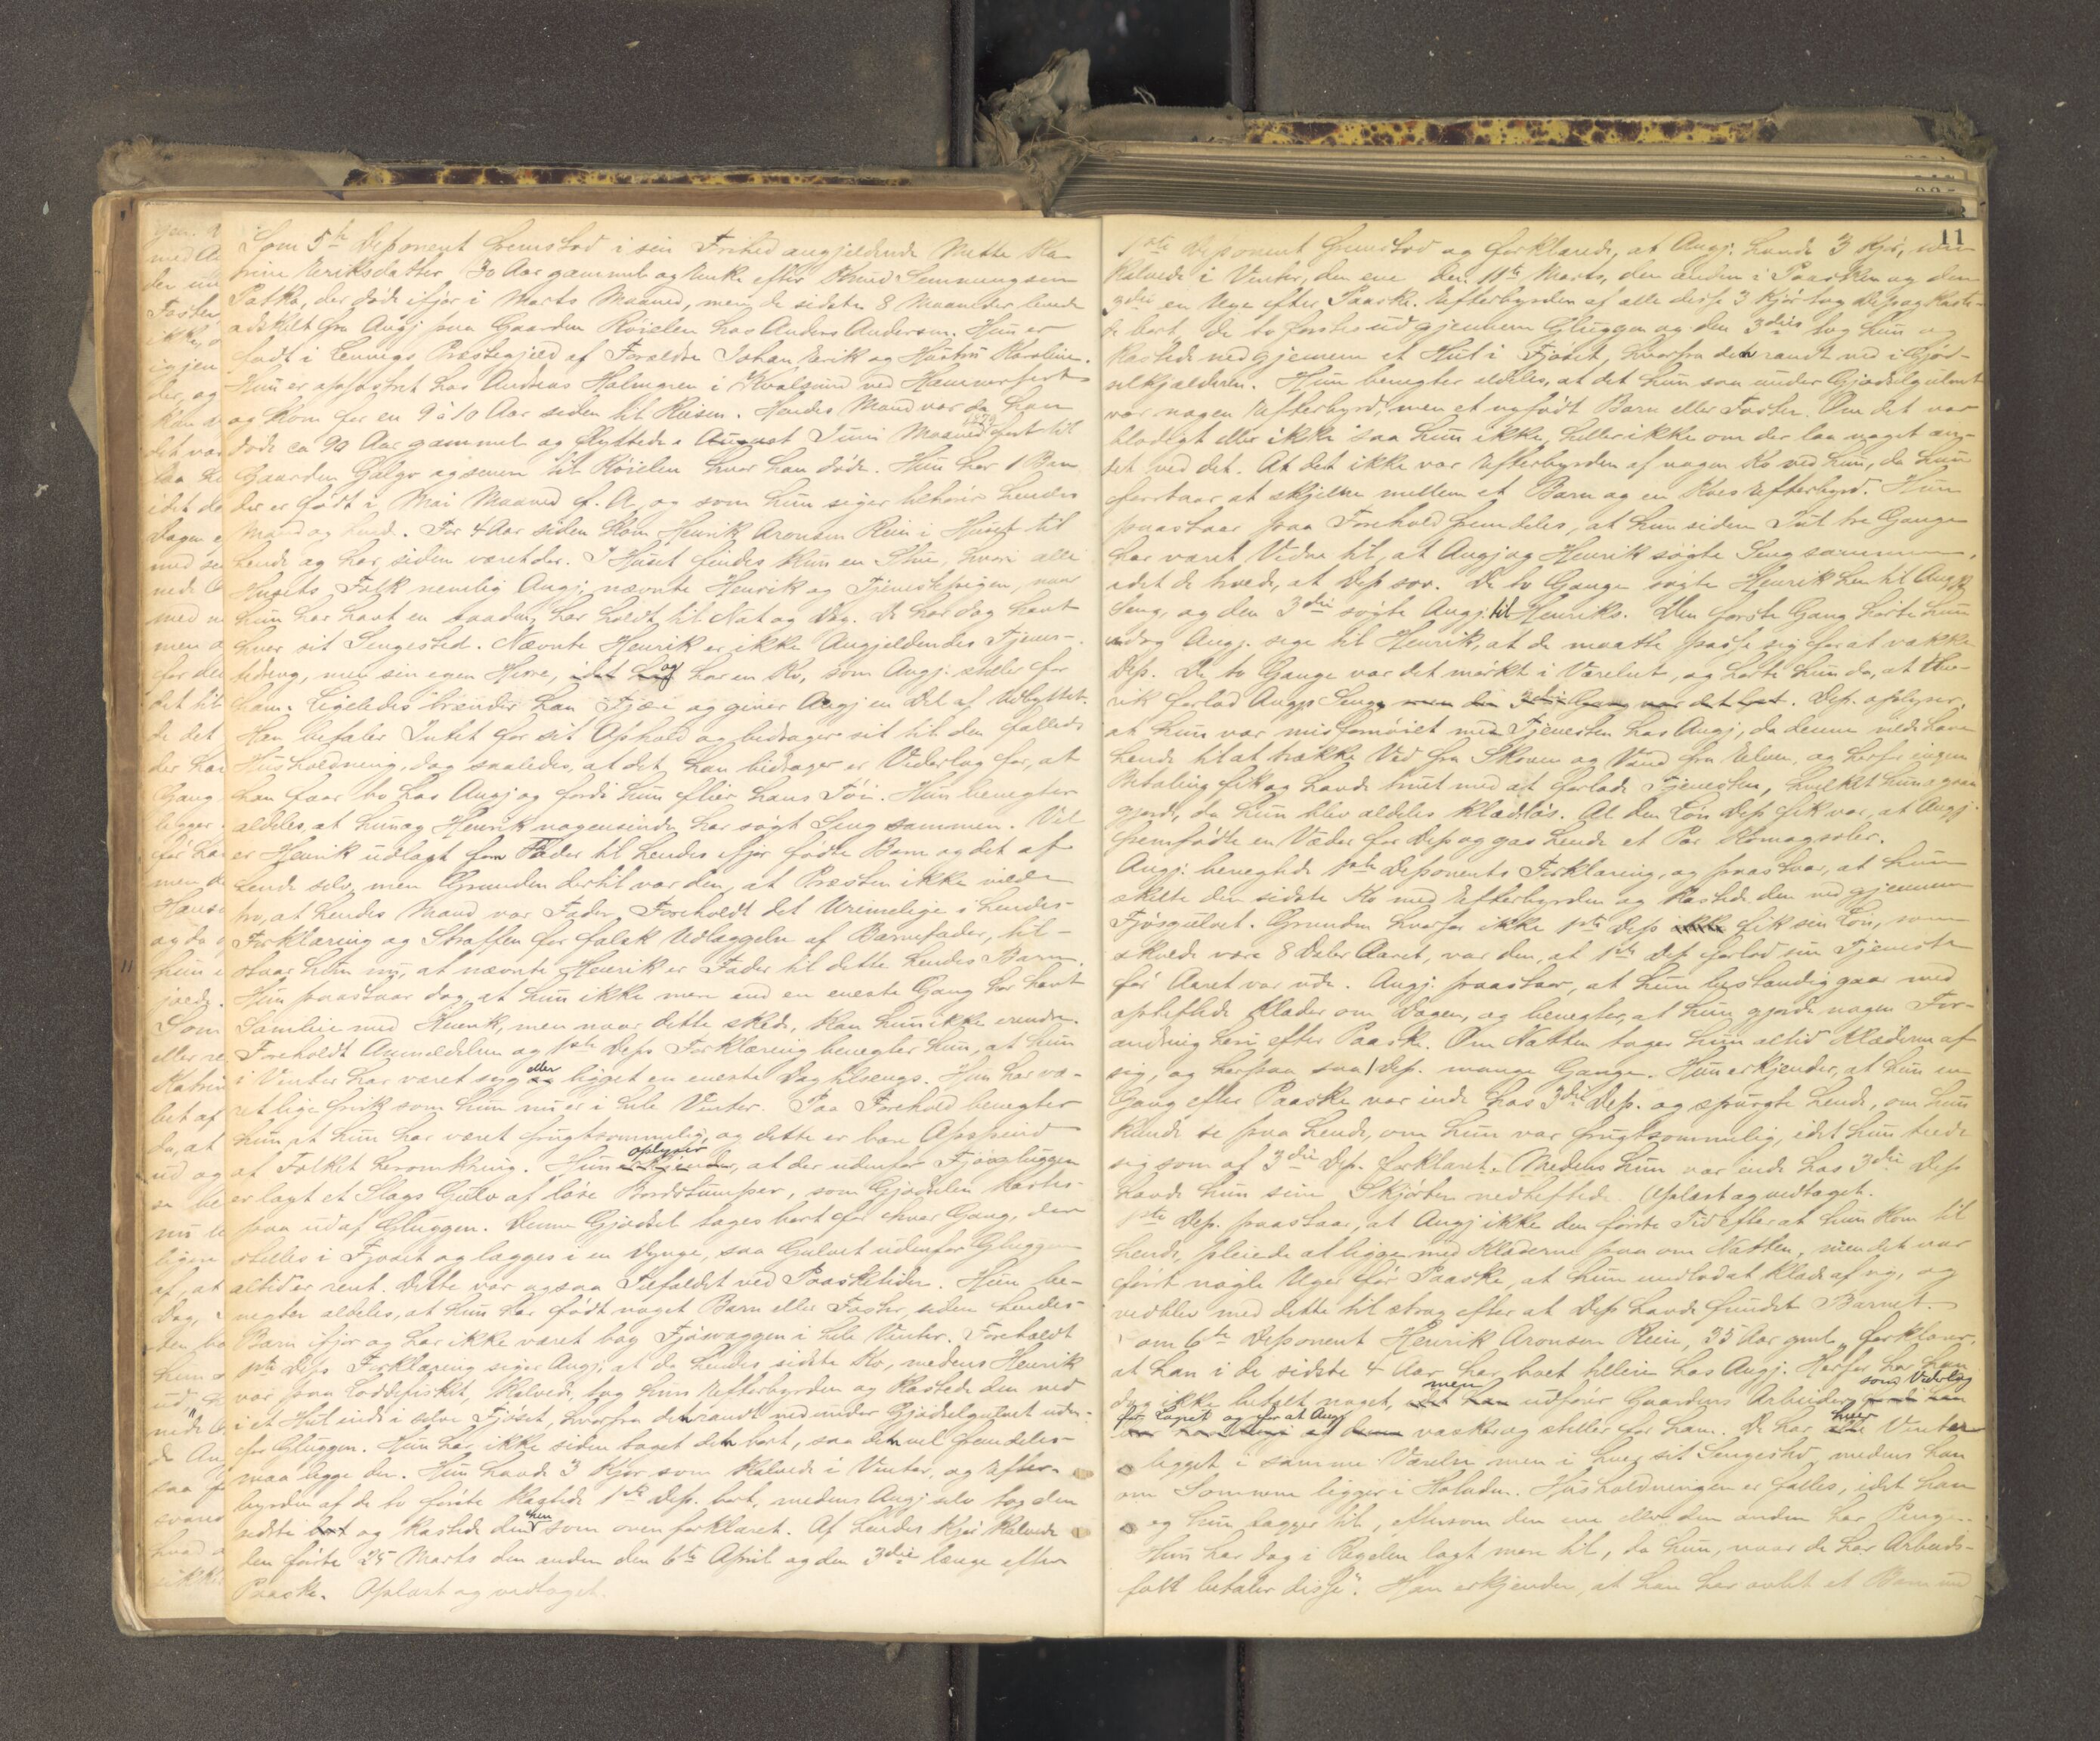 Som 5te Deponent fremstod i sin Frihed angjeldende Mette Ka-
trine Eriksdatter, 30 Aar gammel og Enke efter Knud Semmingsen
Patka, der døde ifjor i Marts Maaned, men de sidste 8 Maaneder levede
adskilt fra Angj. paa Gaarden Røielen hos Anders Andersen. Hun er
født i Lennigs Præstegjeld af Forældre Johan Erik og Hustru Karoline.
Hun er opfostret hos Andreas Holmgren i Kvalsund ved Hammerfest
og kom for en 9 à 10 Aar siden til Reisen. Hendes Mand var da han
døde ca 90 Aar gammel og flyttede i August Juni Maaned 1879 fort til
Gaarden Galgo og senere til Røielen hvor han døde. Hun har 1 Barn
der er født i Mai Maaned f. A. og som hun siger tilhører hendes
Mand og hende. For 4 Aar siden kom Henrik Aronsen Rein i Huset til
hende og har siden været der. I Huset findes kun en Stue, hvori alle
Husets Folk nemlig Angj., nævnte Henrik og Tjenestepigen, naar
hun har havt en saadan, har holdt til Nat og Dag. De har dog havt
hver sit Sengested. Nævnte Henrik er ikke Angjeldendes Tjenes-
tedreng, men sin egen Herre, idet han og har en Ko, som Angj. steller for
ham. Ligeledes brænder han Tjære og giver Angj en Del af Udbyttet.
Han betaler Intet for sit Ophold og bidrager sit til den fælleds
Husholdning, dog saaledes, at det han bidrager er Vederlag for, at
han faar bo hos Angj og fordi hun flier hans Tøi. Hun benegter
aldeles, at hun og Henrik nogensinde har søgt Seng sammen. Vel
er Henrik udlagt som Fader til hendes ifjor fødte Barn og det af
hende selv, men Grunden dertil var den, at Præsten ikke vilde
tro, at hendes Mand var Fader. Foreholdt det Urimelige i hendes
Forklaring og Straffen for falsk Udlæggelse af Barnefader, til-
staar hun nu, at nævnte Henrik er Fader til dette hendes Barn.
Hun paastaar dog, at hun ikke mere end en eneste Gang har havt
Samleie med Henrik, men naar dette skede, kan hun ikke erindre.
Foreholdt Anmeldelsen og 1ste Deps Forklaring benegter hun, at hun
i Vinter har været syg eller ligget en eneste Dag tilsengs. Hun har væ-
ret lige frisk som hun nu er i hele Vinter. Paa Forehold benegter
hun at hun har været frugtsommelig, og dette er bare Opspind
af Folket heromkring. Hun erkjender oplyser, at der udenfor Fjøsgluggen
er lagt et Slags Gulv af løse Bordstumper, som Gjødselen kastes
paa ud af Gluggen. Denne Gjødsel tages bort for hver Gang, der
stelles i Fjøset og lægges i en Dynge, saa Gulvet udenfor Gluggen
altid er rent. Dette var ogsaa Tilfældet ved Paasketider. Hun be-
negter aldeles, at hun har født noget Barn eller Foster, siden hendes
Barn ifjor og har ikke været bag Fjøsvæggen i hele Vinter. Foreholdt
1ste Deps Forklaring siger Angj, at da hendes sidste Ko, medens Henrik
var paa Loddefisket, kalvede, tog hun Efterbyrden og kastede den ned
i et Hul inde i selve Fjøset, hvorfra den randt ned under Gjødselgulvet uden-
for Gluggen. Hun har ikke siden taget den bort, saa den vel fremdeles
maa ligge der. Hun havde 3 Kjør som kalvede i Vinter, og Efter-
byrden af de to første kastede 1ste Dep. bort, medens Angj selv tog den
sidste bort og kastede den hen som oven forklaret. Af hendes Kjør kalvede
den første 25 Marts den anden den 6te April og den 3die længe efter
Paaske. Oplæst og vedtaget.
11
1ste Deponent fremstod og forklarede, at Angj. havde 3 Kjør, som
kalvede i Vinter, den ene den 11te Marts, den anden i Paasken og den
3die en Uge efter Paaske. Efterbyrden af alle disse 3 Kjør tog Dep og kaste-
de bort, de to førstes ud gjennem Gluggen og den 3dies tog hun og
kastede ned gjennem et Hul i Fjøset, hvorfra den randt ned i Gjød-
selkjælderen. Hun benegter aldeles, at det hun saa under Gjødselgulvet
var nogen Efterbyrd, men et nyfødt Barn eller Foster. Om det var
blodigt eller ikke saa hun ikke, heller ikke om der laa noget an-
det ved det. At det ikke var Efterbyrden af nogen Ko ved hun, da hun
forstaar at skjelne mellem et Barn og en Koes Efterbyrd. Hun
paastaar paa Forehold fremdeles, at hun siden Jul tre Gange
har været Vidne til, at Angj og Henrik søgte Seng sammen,
idet de troede, at Dep sov. De to Gange søgte Henrik hen til Angjs
Seng, og den 3die søgte Angj. til Henriks. Den første Gang hørte hun
endog Angj. sige til Henrik, at de maatte passe sig for at vække
Dep. De to Gange var det mørkt i Værelset, og hørte hun da, at Hen-
rik forlod Angjs Seng, men den 3die Gang var det lyst. Dep. oplyser,
at hun var misfornøiet med Tjenesten hos Angj, da denne vilde have
hende til at trække Ved fra Skoven og Vand fra Elven, og herfor ingen
Betaling fik og havde truet med at forlade Tjenesten, hvilket hun ogsaa
gjorde, da hun blev aldeles klædløs. Al den Løn Dep fik var, at Angj.
fremfødte en Væder for Dep og gav hende et Par Komagsoler.
Angj: benegtede 1ste Deponents Forklaring, og paastaar, at hun
skilte den sidste Ko med Efterbyrden og kastede den ned gjennem
Fjøsgulvet. Grunden hvorfor ikke 1ste Dep ikke fik sin Løn, som
skulde være 8 Daler Aaret, var den, at 1ste Dep forlod sin Tjeneste
før Aaret var ude. Angj: paastaar, at hun bestandig gaar med
opheftede Klæder om Dagen, og benegter, at hun gjorde nogen For-
andring heri efter Paaske. Om Natten tager hun altid Klæderne af
sig, og herpaa saa 1 Dep. mange Gange. Hun erkjender, at hun en
Gang efter Paaske var inde hos 3die Dep. og spurgte hende, om hun
kunde se paa hende, om hun var frugtsommelig, idet hun teede
sig som af 3die Dep. forklaret. Medens hun var inde hos 3die Dep
havde hun sine Skjørter nedheftede. Oplæst og vedtaget.
1ste Dep. paastaar, at Angj ikke den første Tid efter at hun kom til
hende, pleiede at ligge med Klæderne paa om Natten, men det var
først nogle Uger før Paaske, at hun undlod at klæde af sig, og
vedblev med dette til strag efter at Dep havde fundet Barnet.
Som 6te Deponent Henrik Aronsen Rein, 35 Aar gml, forklarer,
at han i de sidste 4 Aar har boet tilleie hos Angj. Herfor har han
dog ikke betalt noget, idet han men udfører Gaardens Arbeider fordi han som Vederlag
for Logiet og for at Angj vasker og steller for ham. De har alle hver Vinter
ligget i samme Værelse men i hver sit Sengested medens han
om Sommeren ligger i Høladen. Husholdningen er fælles, idet han
og hun lægger til, eftersom den ene eller den anden har Penge.
Hun har dog i Regelen lagt mere til, da hun, naar de har Arbeids-
folk betaler disse. Han erkjender, at han har avlet et Barn med